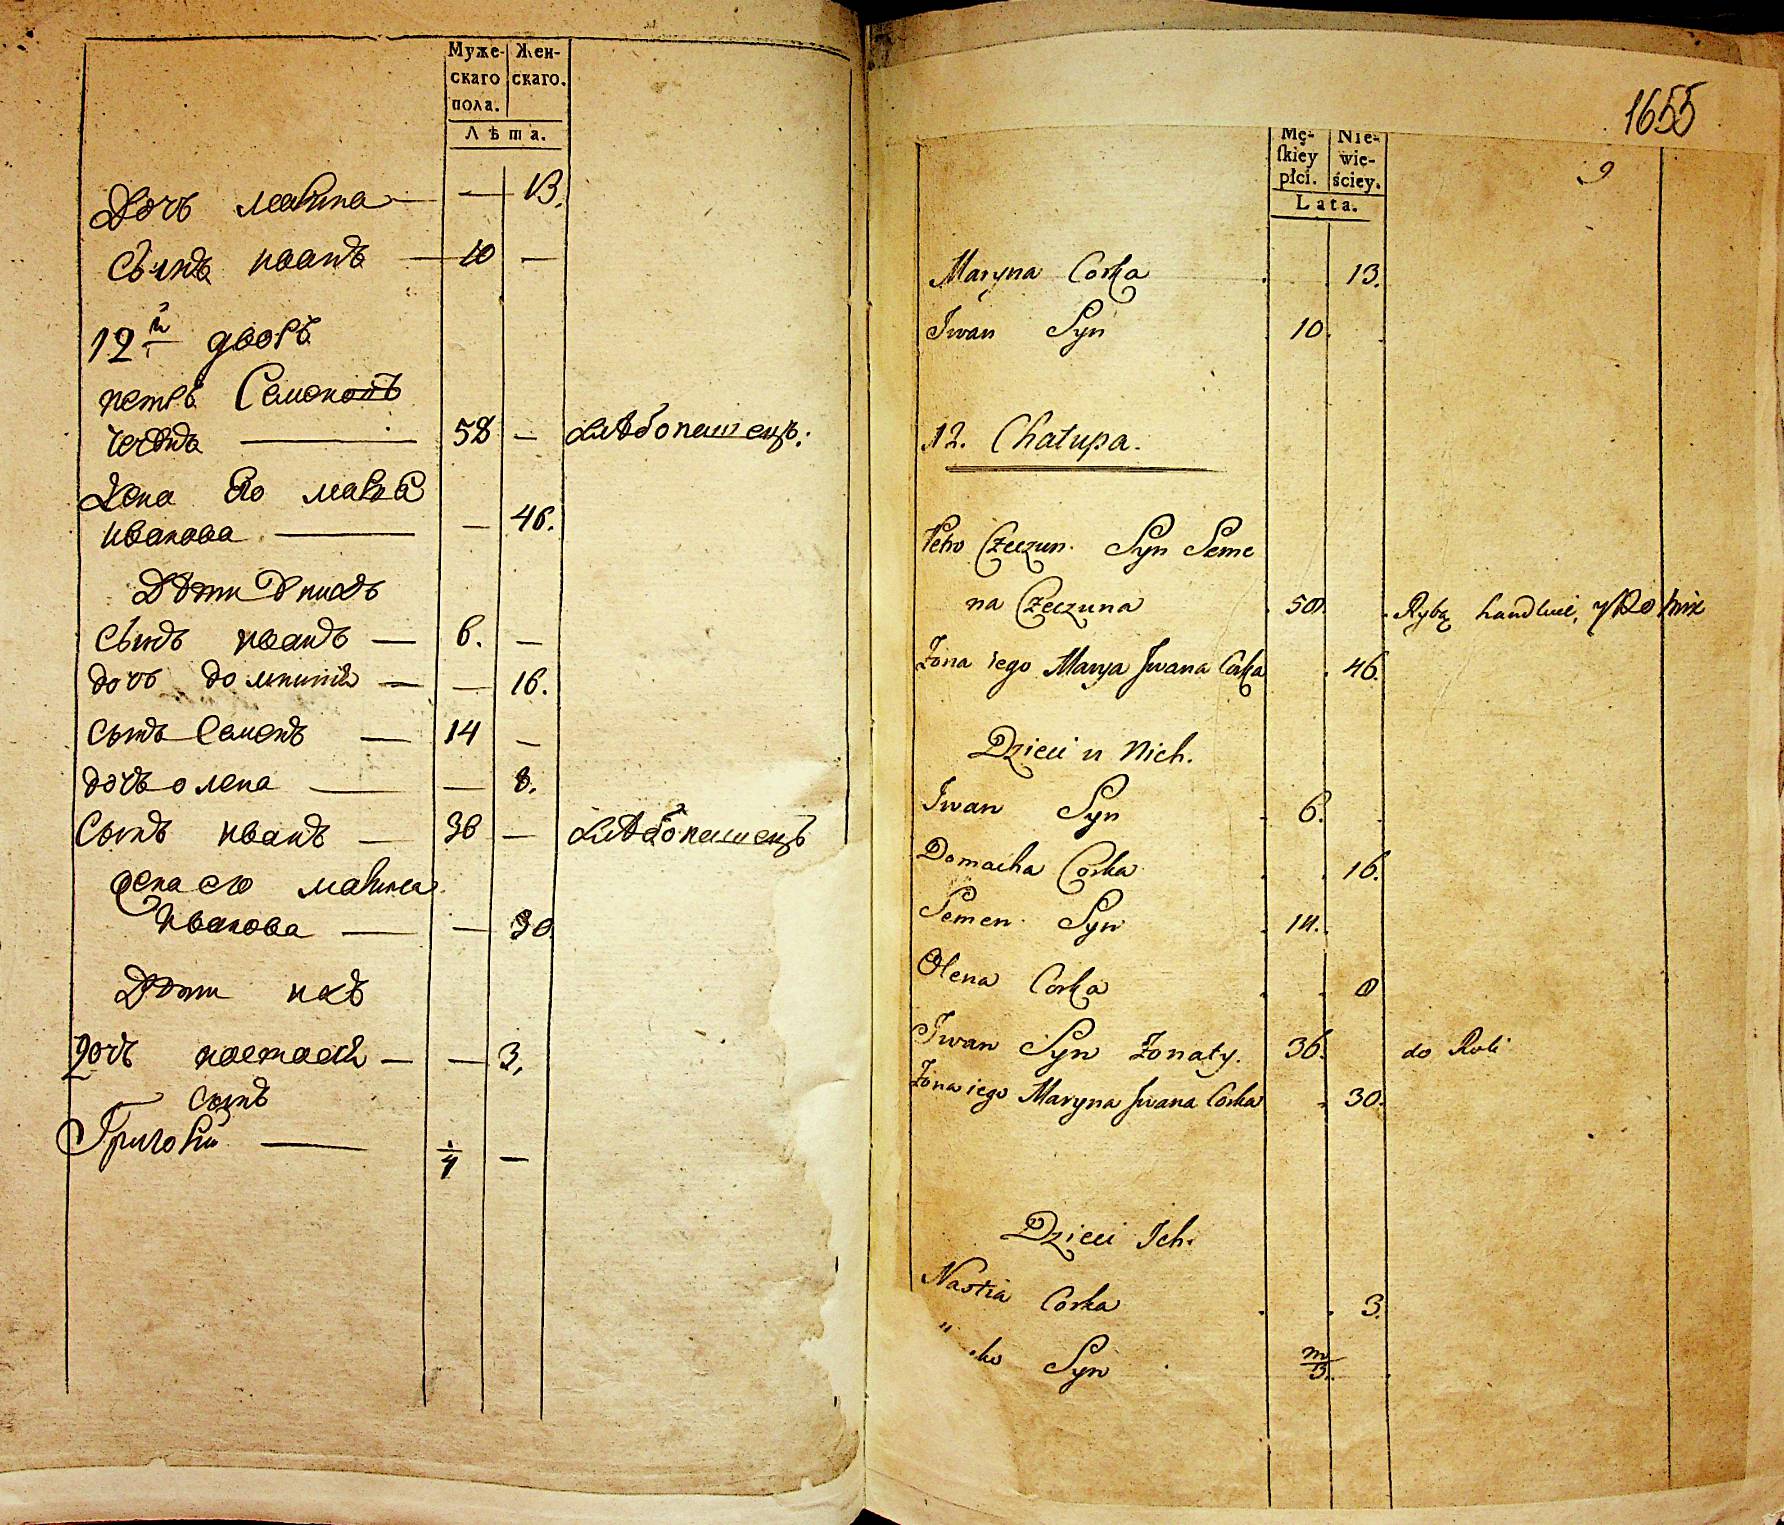 Муже- Жен-
скаго скаго.
пола.
Лѣта.
Дочь марина — — 13.
Сынъ иванъ — 10 —
12й дворъ
петръ Семеновъ
чечюнъ — 58 — хлѣбопашецъ.
Жена Его мария
иванова — — 46.
Дѣти У нихъ
сынъ иванъ — 6. —
дочь домникия — — 16.
сынъ Семенъ — 14 —
дочь олена — — 8.
Сынъ иванъ — 36 — хлѣбопашецъ
жена его марина
иванова — — 30.
Дѣти ихъ
Дочь настасия — — 3.
сынъ
Григорий — 1/4 —
1655
9
Mę- Nie-
ſkiey wie-
płci. ściey.
Lata.
Maryna Corka 13.
Iwan Syn 10.
12. Chałupa.
Petro Czeczun. Syn Seme
na Czeczuna 58. Rybą handluie,
Żona iego Marya Iwana Corka 46.
Dzieci u Nich.
Iwan Syn 6.
Domacha Corka 16.
Semen Syn 14.
Olena Corka 8
Iwan Syn Żonaty. 36. do Roli
Żona iego Maryna Iwana Corka 30.
Dzieci Ich.
Nastia Corka 3.
Syn m/3.